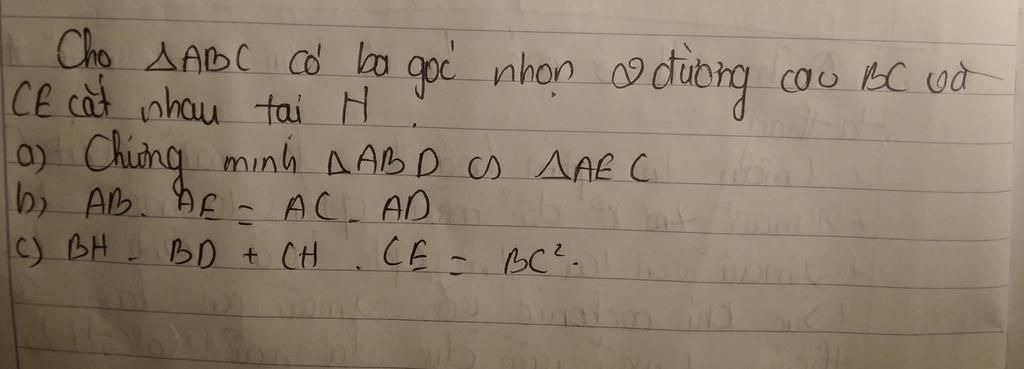 Cho △ABC có ba góc nhọn 2 đường cao BC và
CE cắt nhau tai H.
a) Chứng minh △ABD ∽ △AEC
b) AB. AE = AC. AD
c) BH. BD + CH. CE = BC².